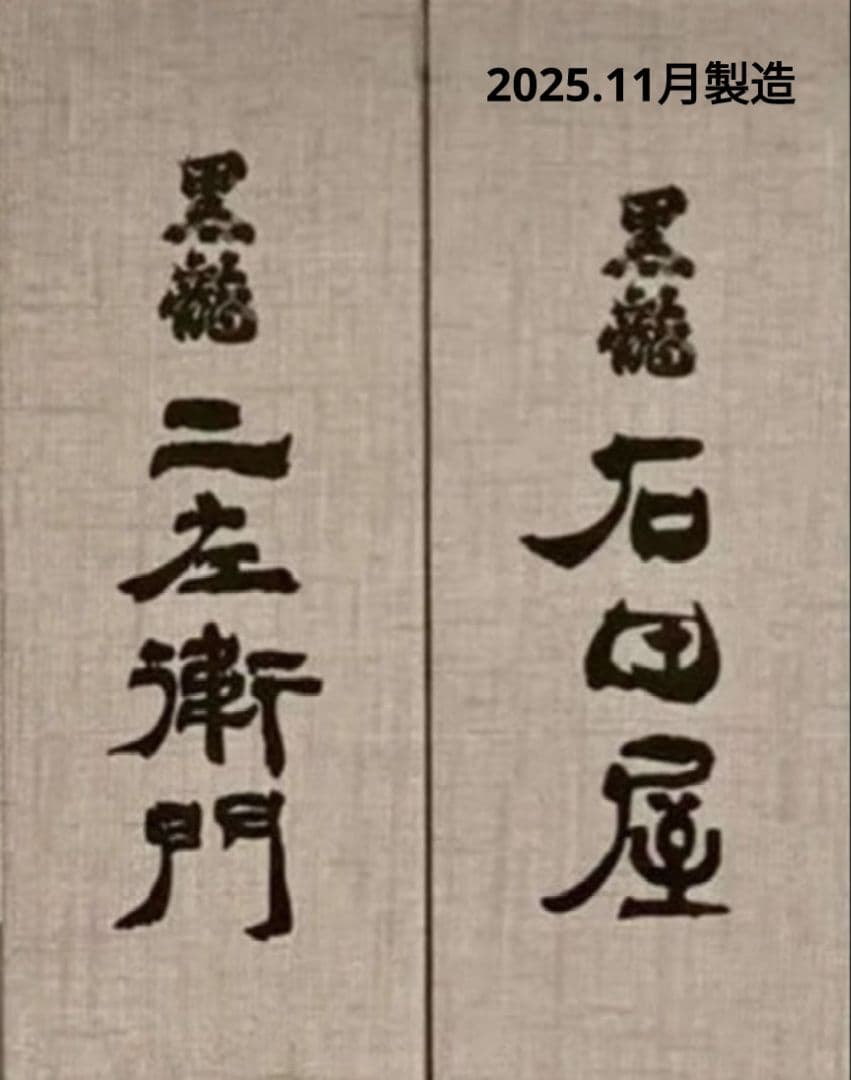 2025.11月製造
黒龍
石田屋
黒龍
二左衛門